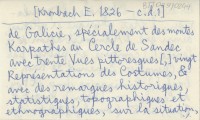 [Kronbach E. 1826 - c.d.1]
de Galicie, spécialement des montes
Karpathes au Cercle de Sandec
avec trente Vues pittoresques[,] vingt
Représentations des Costumes, &
avec des remarques historiques,
statistiques, topographiques et
ethnographiques, sur la situation,